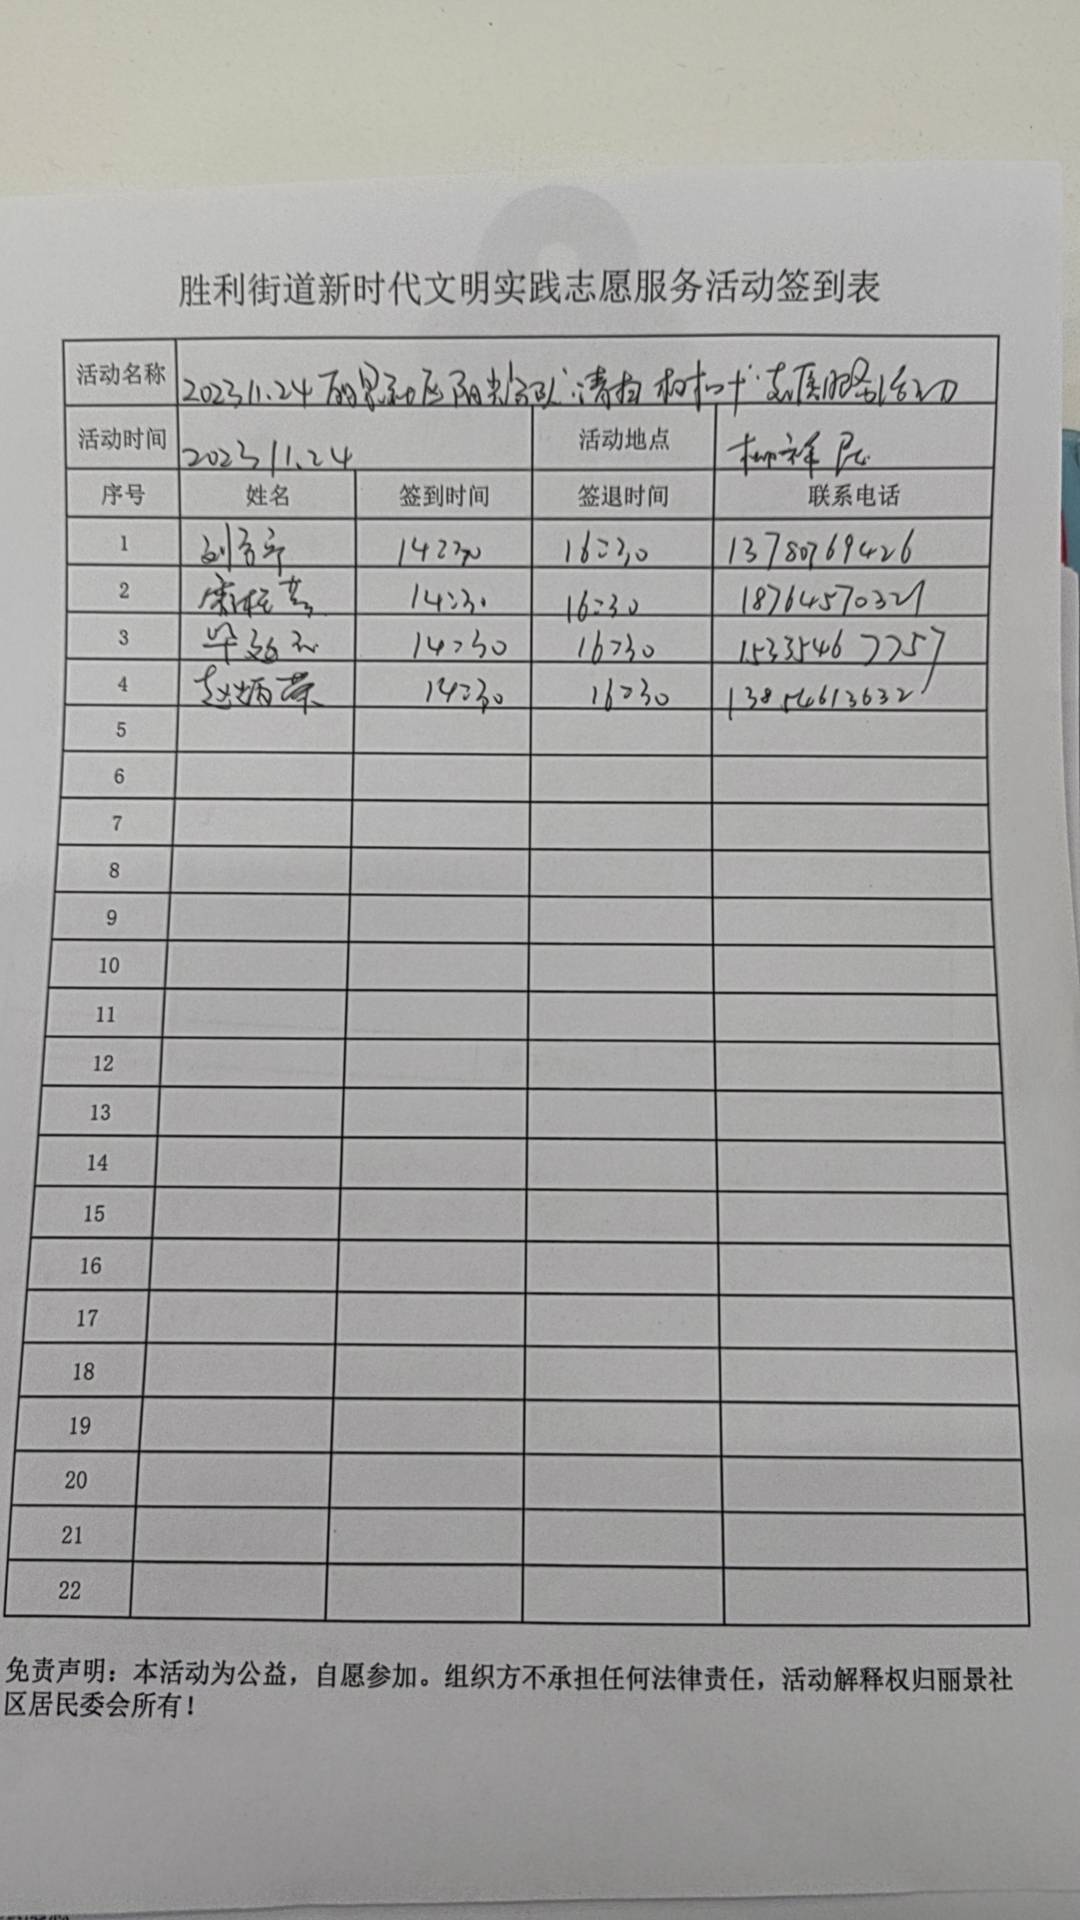 胜利街道新时代文明实践志愿服务活动签到表
活动名称 2023.11.24 丽景社区阳光 "清扫树叶" 志愿服务活动
活动时间 2023.11.24 活动地点
序号 姓名 签到时间 签退时间 联系电话
1 14:30 16:30 13780769426
2 14:30 16:30 18764570321
3 14:30 16:30 15335467757
4 赵炳荣 14:30 16:30 13854613632
5
6
7
8
9
10
11
12
13
14
15
16
17
18
19
20
21
22
免责声明：本活动为公益，自愿参加。组织方不承担任何法律责任，活动解释权归丽景社
区居民委会所有！